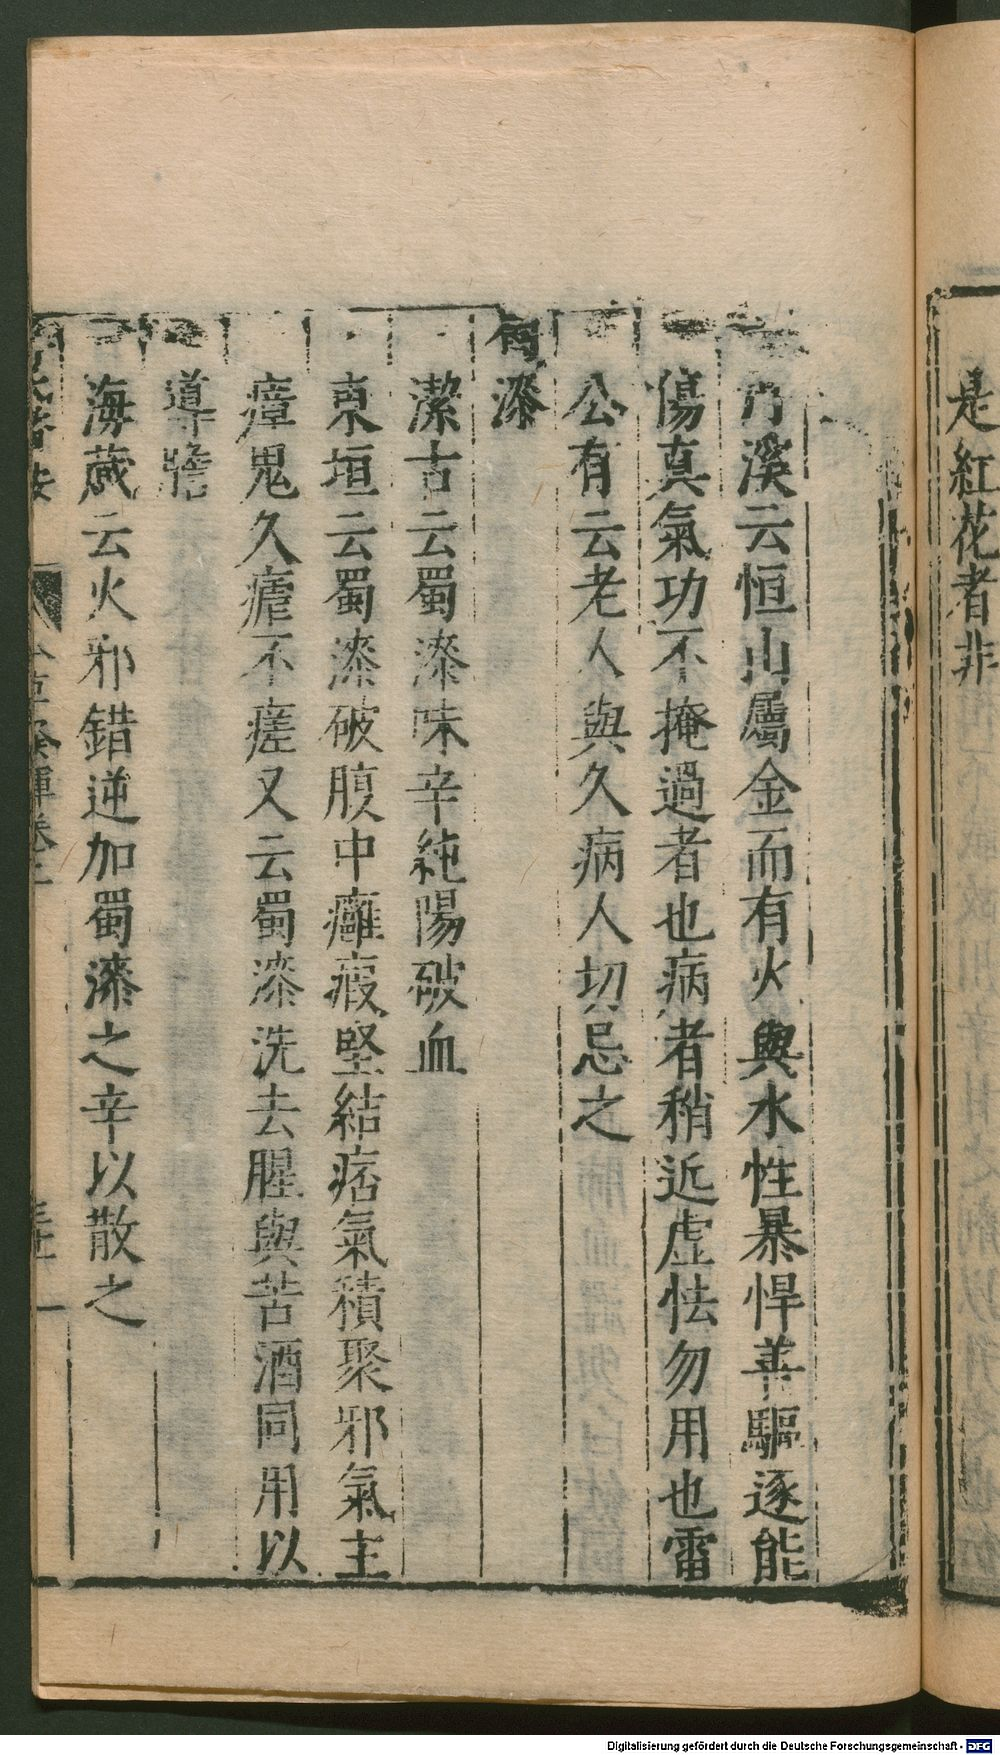 是紅花者非
溪云恒山屬金而有火與水性暴悍善驅逐能
傷真氣功不掩過者也病者稍近虛怯勿用也雷
公有云老人與久病人切忌之
漆
潔古云蜀漆味辛純陽破血
東垣云蜀漆破腹中癥瘕堅結痞氣積聚邪氣主
瘴鬼久瘧不瘥又云蜀漆洗去腥與苦酒同用以
導膽
海藏云火邪錯逆加蜀漆之辛以散之
Digitalisierung gefördert durch die Deutsche Forschungsgemeinschaft - DFG